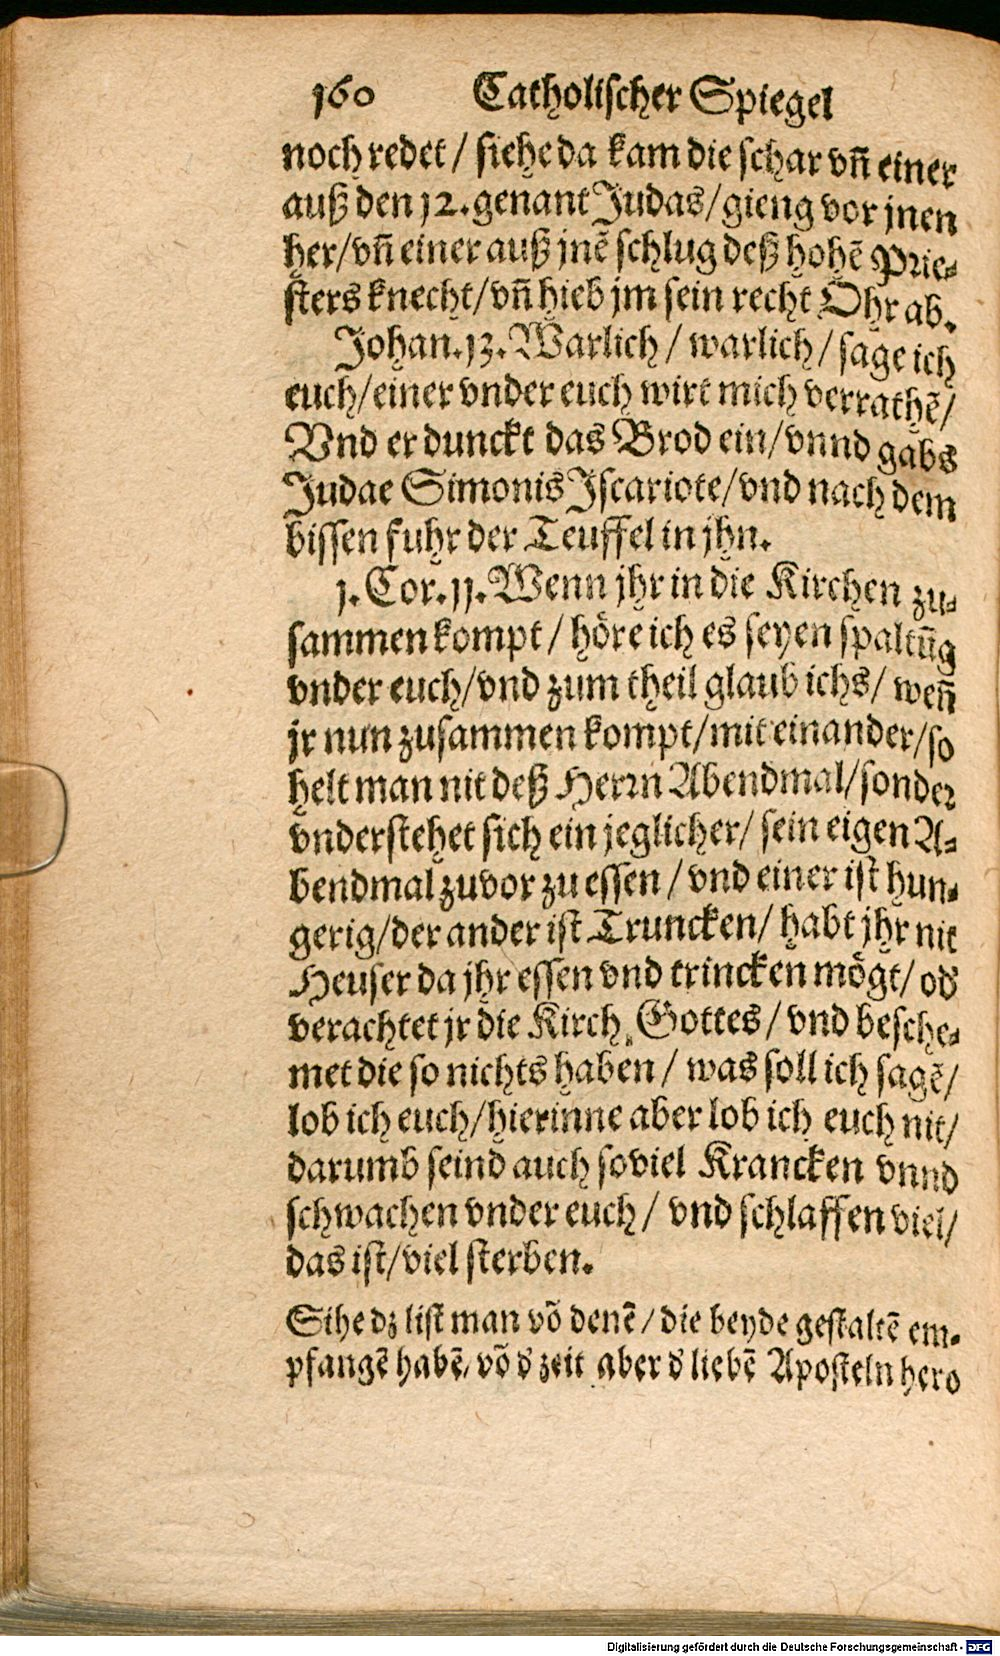 160 Catholischer Spiegel
noch redet / siehe da kam die schar vñ einer
auß den 12. genant Judas / gieng vor jnen
her / vñ einer auß jnẽ schlug deß hohẽ Prie-
sters knecht / vñ hieb jm sein recht Ohr ab.
Johan. 13. Warlich / warlich / sage ich
euch / einer vnder euch wirt mich verrathẽ /
Vnd er dunckt das Brod ein / vnnd gabs
Judae Simonis Iscariote / vnd nach dem
bissen fuhr der Teuffel in jhn.
1. Cor. 11. Wenn jhr in die Kirchen zu-
sammen kompt / höre ich es seyen spaltũg
vnder euch / vnd zum theil glaub ichs / weñ
jr nun zusammen kompt / mit einander / so
helt man nit deß Herrn Abendmal / sonder
vnderstehet sich ein jeglicher / sein eigen A-
bendmal zuvor zu essen / vnd einer ist hun-
gerig / der ander ist Truncken / habt jhr nit
Heuser da jhr essen vnd trincken mögt / od
verachtet jr die Kirch Gottes / vnd besche-
met die so nichts haben / was soll ich sagẽ /
lob ich euch / hierinne aber lob ich euch nit /
darumb seind auch soviel Krancken vnnd
schwachen vnder euch / vnd schlaffen viel /
das ist / viel sterben.
Sihe dz list man võ denẽ / die beyde gestaltẽ em-
pfangẽ habẽ, võ d zeit aber d liebẽ Aposteln hero
Digitalisierung gefördert durch die Deutsche Forschungsgemeinschaft - DFG